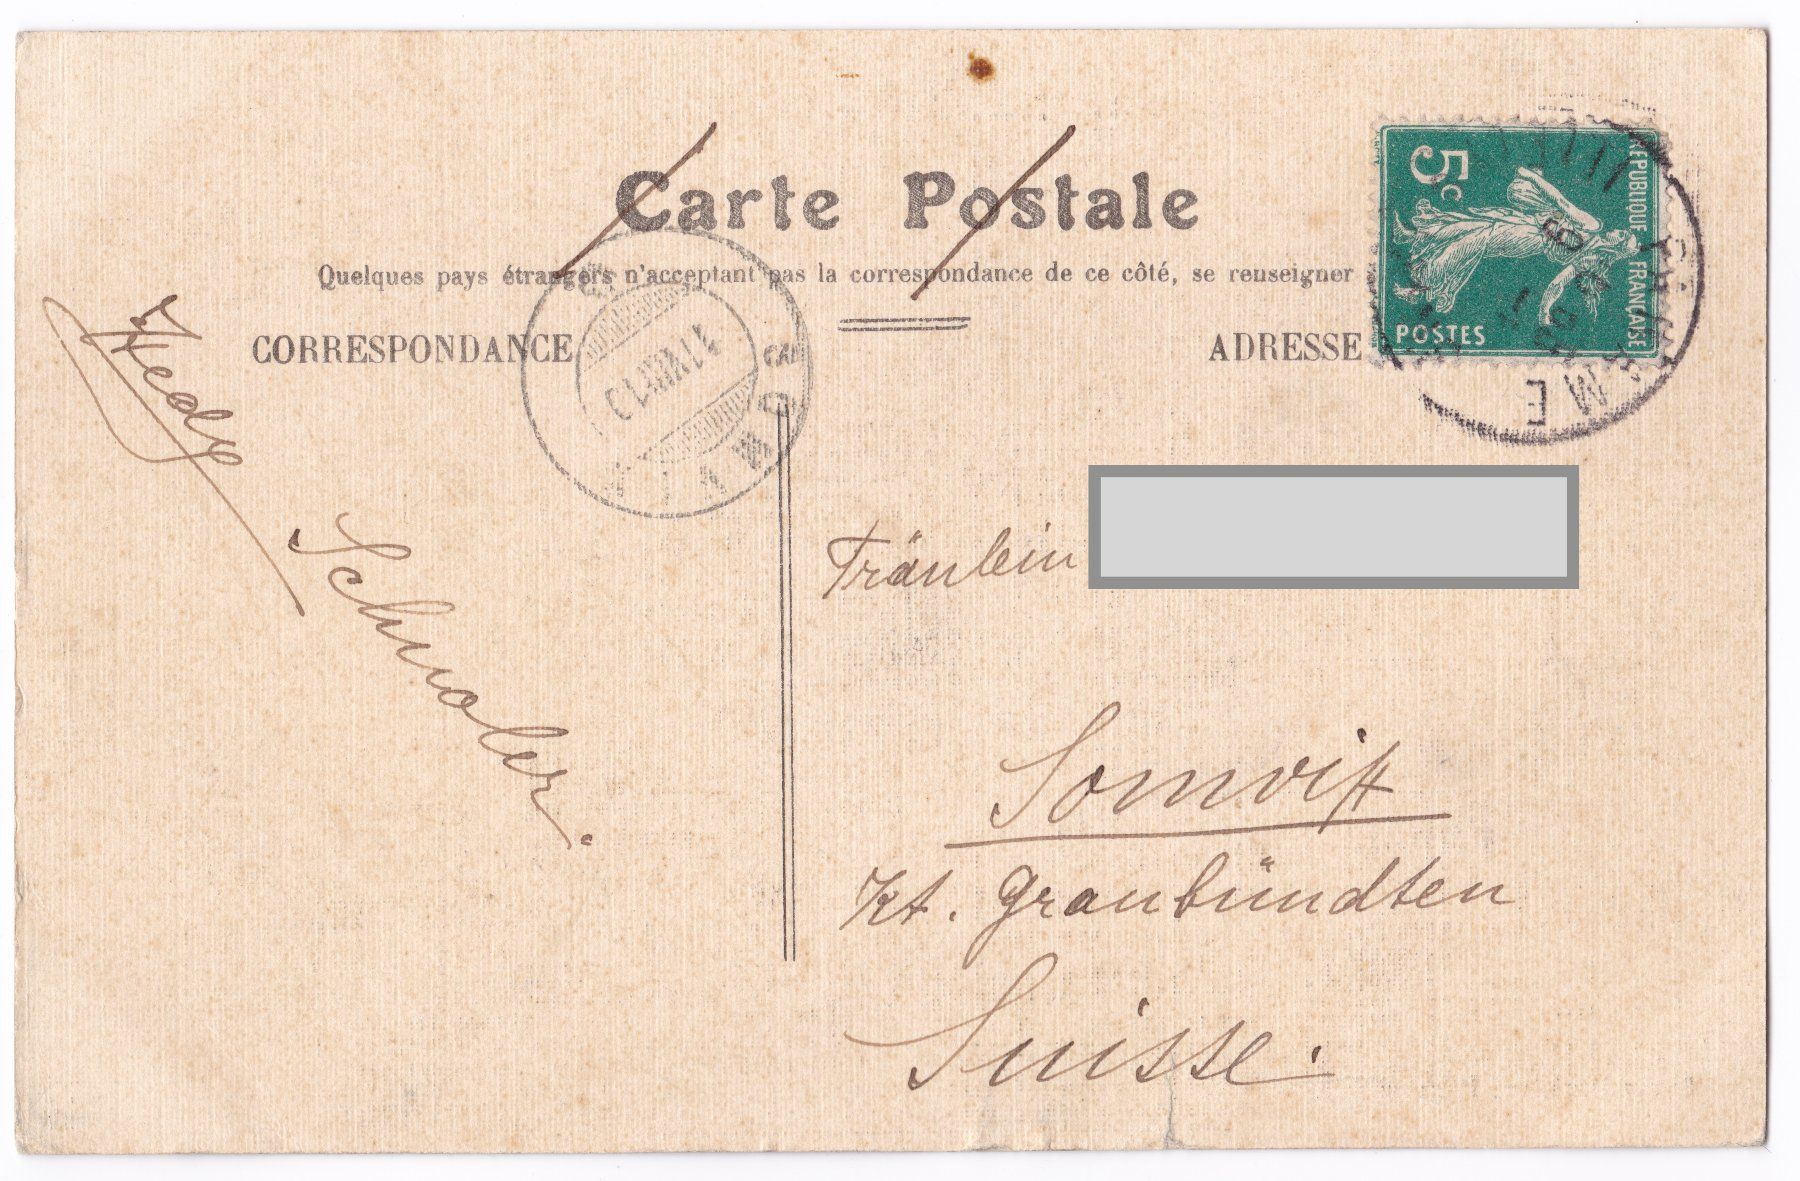 Carte Postale
Quelques pays étrangers n'acceptant pas la correspondance de ce côté, se renseigner
CORRESPONDANCE
ADRESSE
REPUBLIQUE FRANÇAISE
5c
POSTES
Hedy
Schmoler.
Fräulein
Somvix
Kt. Graubündten
Suisse.